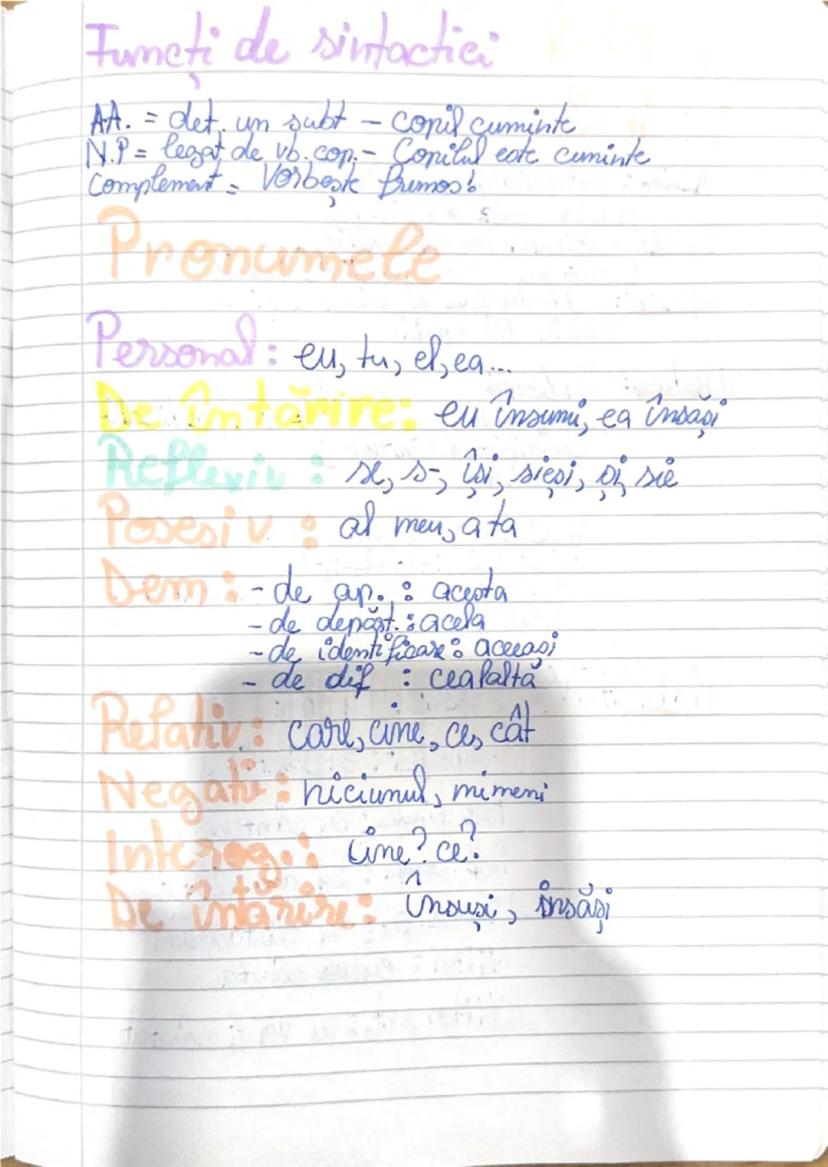 Funcți de sintactici
AA. = det. un subt - copil cuminte
N.P = legat de vb. cop. - Copilul este cuminte
Complement = Vorbește frumos!
Pronumele
Personal: eu, tu, el, ea...
De întărire: eu însumi, ea însăși
Reflexiv: se, s-, își, sieși, și, sie
Posesiv: al meu, a ta
Dem: - de ap. : acesta
- de depărt. : acela
- de identificare : aceeași
- de dif : cealaltă
Relativ: care, cine, ce, cât
Negativ: niciunul, nimeni
Interog.: cine? ce?
De întărire: Însuși, însăși